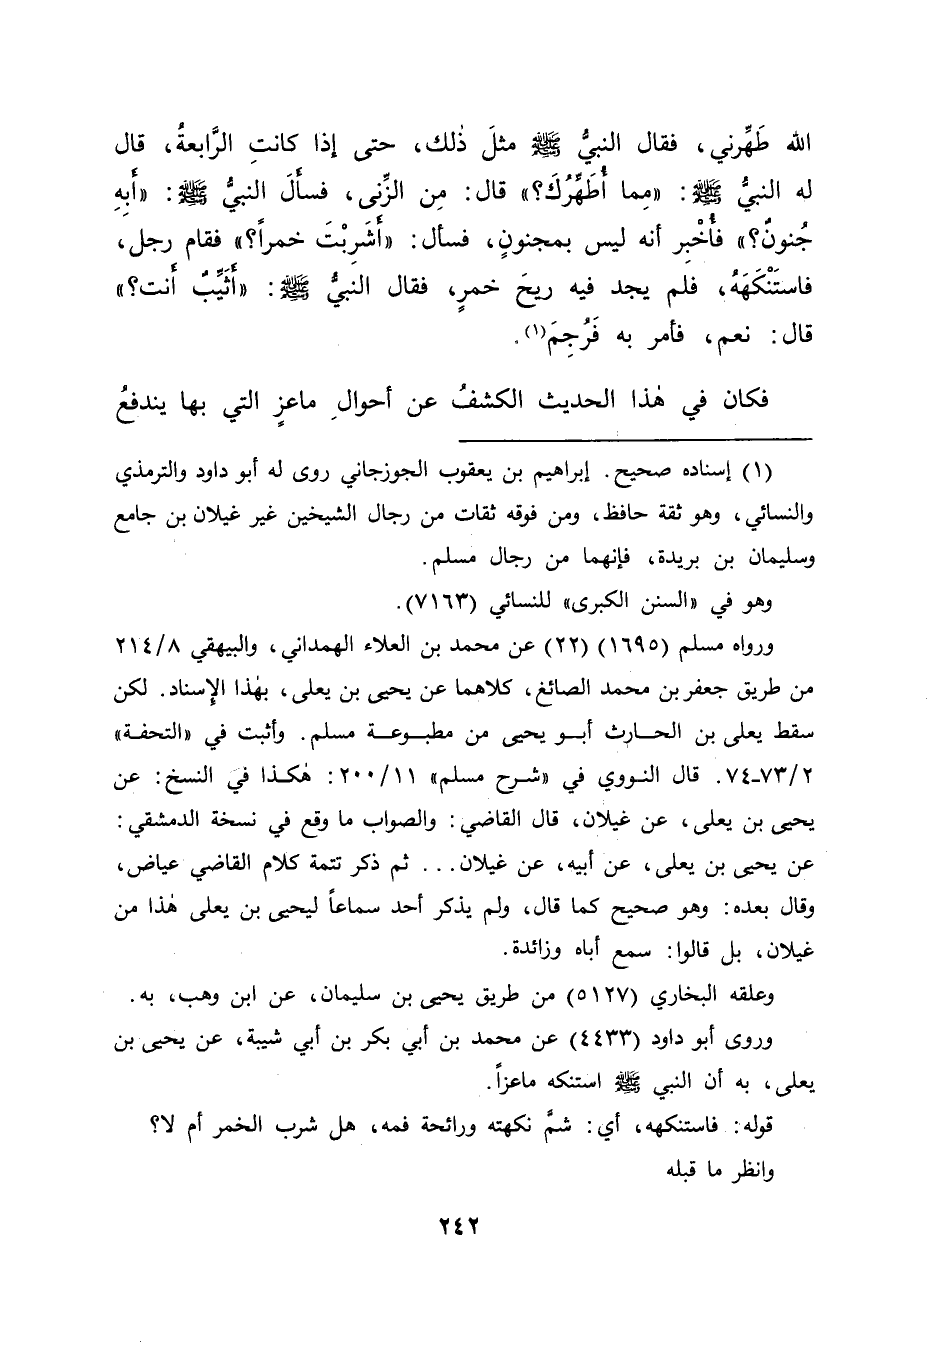 الله طَهِّرني، فقال النبيُّ ﷺ مثلَ ذٰلك، حتى إذا كانتِ الرَّابعةُ، قال
له النبيُّ ﷺ: «مِما أُطَهِّرُكَ؟» قال: مِن الزِّنى، فسأَلَ النبيُّ ﷺ: «أَبِهِ
جُنونٌ؟» فأُخْبِر أنه ليس بمجنونٍ، فسأل: «أَشَرِبْتَ خمراً؟» فقام رجل،
فاستَنْكَهَهُ، فلم يجد فيه ريحَ خمرٍ، فقال النبيُّ ﷺ: «أَثَيِّبٌ أنت؟»
قال: نعم، فأمر به فَرُجِمَ(١).
فكان في هٰذا الحديث الكشفُ عن أحوالِ ماعزٍ التي بها يندفعُ
(١) إسناده صحيح. إبراهيم بن يعقوب الجوزجاني روى له أبو داود والترمذي
والنسائي، وهو ثقة حافظ، ومن فوقه ثقات من رجال الشيخين غير غيلان بن جامع
وسليمان بن بريدة، فإنهما من رجال مسلم.
وهو في «السنن الكبرى» للنسائي (٧١٦٣).
ورواه مسلم (١٦٩٥) (٢٢) عن محمد بن العلاء الهمداني، والبيهقي ٢١٤/٨
من طريق جعفر بن محمد الصائغ، كلاهما عن يحيى بن يعلى، بهٰذا الإسناد. لكن
سقط يعلى بن الحارث أبو يحيى من مطبوعة مسلم. وأثبت في «التحفة»
٧٣/٢-٧٤. قال النووي في «شرح مسلم» ٢٠٠/١١: هٰكذا في النسخ: عن
يحيى بن يعلى، عن غيلان، قال القاضي: والصواب ما وقع في نسخة الدمشقي:
عن يحيى بن يعلى، عن أبيه، عن غيلان... ثم ذكر تتمة كلام القاضي عياض،
وقال بعده: وهو صحيح كما قال، ولم يذكر أحد سماعاً ليحيى بن يعلى هٰذا من
غيلان، بل قالوا: سمع أباه وزائدة.
وعلقه البخاري (٥١٢٧) من طريق يحيى بن سليمان، عن ابن وهب، به.
وروى أبو داود (٤٤٣٣) عن محمد بن أبي بكر بن أبي شيبة، عن يحيى بن
يعلى، به أن النبي ﷺ استنكه ماعزاً.
قوله: فاستنكهه، أي: شمَّ نكهته ورائحة فمه، هل شرب الخمر أم لا؟
وانظر ما قبله
٢٤٢